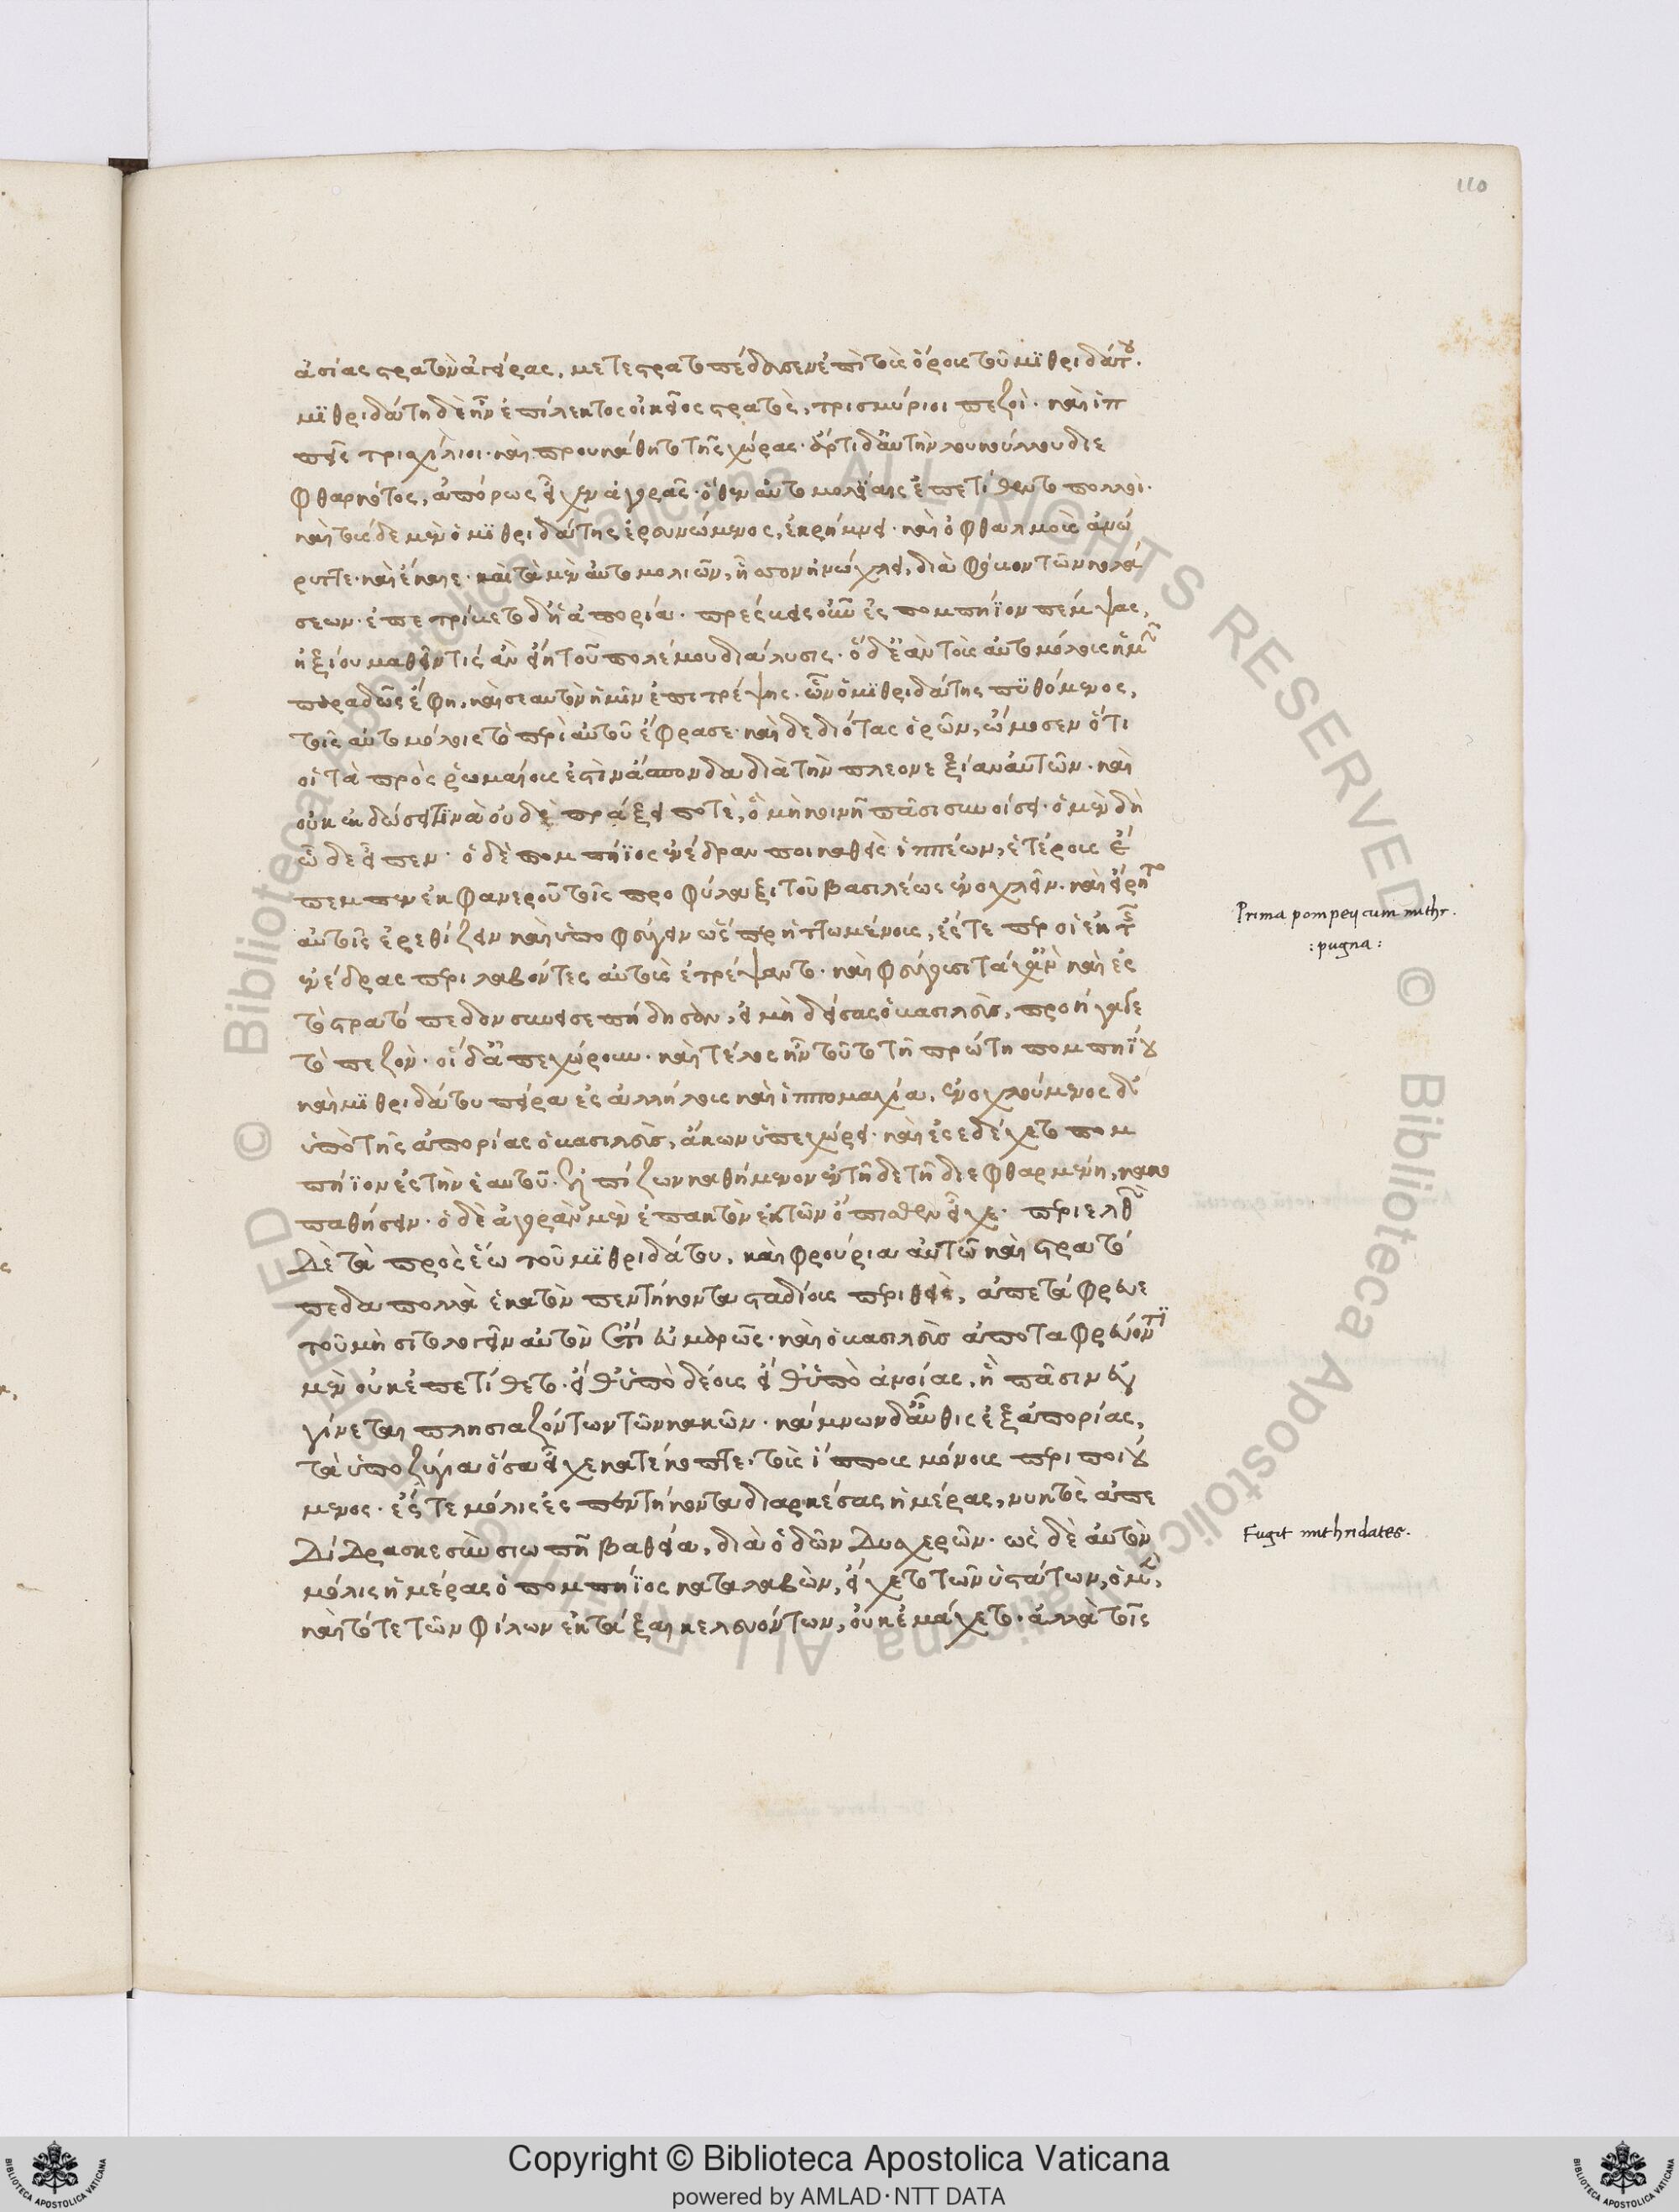 110
ἀσίας στρατὸν ἀγείρας, μετεστρατοπέδευσεν ἐπὶ τοὺς ὅρους τοῦ μϊθριδάτου.
μϊθριδάτη δὲ ἦν ἐπίλεκτος οἰκεῖος στρατὸς, τρισμύριοι πεζοὶ. καὶ ἱπ
πεῖς τρισχίλιοι. καὶ προυκάθητο τῆς χώρας. ἄρτι δ' αὐτὴν λουκούλλου διε
φθαρκότος, ἀπόρως εἶχεν ἀγορᾶς. ὅθεν αὐτομολίαις ἐπετίθεντο πολλοὶ.
καὶ τούσδε μὲν ὁ μϊθριδάτης ἐρευνώμενος, ἐκρήμνει. καὶ ὀφθαλμοὺς ἀνώ
ρυττε. καὶ ἔκαιε. καὶ τὰ μὲν αὐτομολιῶν, ἧσσον ἠνώχλει, διὰ φόβον τῶν κολά
σεων. ἐπετρίβετο δὴ ἡ ἀπορία. πρέσβεις οὖν ἐς πομπήϊον πέμψας,
ἠξίου μαθεῖν τίς ἂν εἴη τοῦ πολέμου διάλυσις. ὁ δὲ ἂν τοὺς αὐτομόλους ἡμῖν
παραδῶς ἔφη, καὶ σεαυτὸν ἡμῖν ἐπιτρέψης. ὧν ὁ μϊθριδάτης πϋθόμενος,
τοῖς αὐτομόλοις τὸ περὶ αὐτοῦ ἔφρασε. καὶ δεδιότας ὁρῶν, ὤμοσεν ὅτι
οἱ τὰ πρὸς ῥωμαίους ἐστὶν ἄσπονδα διὰ τὴν πλεονεξίαν αὐτῶν. καὶ
οὐκ ἐκδώσει τϊνὰ οὐδὲ πράξει ποτὲ, ὃ μὴ κοινῆ πᾶσι συνοίσει. ὁ μὲν δὴ
ὧδε εἶπεν. ὁ δὲ πομπήϊος ἐνέδραν ποι καθεὶς ἱππέων, ἑτέρους ἔ
πεμπεν ἐκ φανεροῦ τοῖς προφύλαξι τοῦ βασιλέως ἐνοχλεῖν. καὶ εἴρητο
αὐτοῖς ἐρεθίζειν καὶ ὑποφεύγειν ὥσπερ ἡττωμένοις, ἔστε περ οἱ ἐκ τῆς
ἐνέδρας περιλαβόντες αὐτοὺς ἐτρέψαντο. καὶ φεύγουσι τάχ' ἂν καὶ ἐς
τὸ στρατόπεδον συνεισεπήδησαν, εἰ μὴ δείσας ὁ βασιλεὺς, προήγαγε
τὸ πεζὸν. οἱ δ' ἀπεχώρουν. καὶ τέλος ἦν τοῦτο τῆ πρώτη πομπηΐου
καὶ μϊθριδάτου πείρα ἐς ἀλλήλους καὶ ἱππομαχία. ἐνοχλούμενος δ'
ὑπὸ τῆς ἀπορίας ὁ βασιλεὺς, ἄκων ὑπεχώρει. καὶ ἐσεδέχετο πομ
πήϊον ἐς τὴν ἑαυτοῦ. ἐλπίζων καθήμενον ἐν τῆδε τῆ διεφθαρμένη, κακο
παθήσειν. ὁ δὲ ἀγορὰν μὲν ἐπακτὸν ἐκ τῶν ὄπισθεν εἶχε. περιελθὼν
δὲ τὰ πρὸς ἕω τοῦ μϊθριδάτου, καὶ φρούρια αὐτῶ καὶ στρατό
πεδα πολλὰ ἑκατὸν πεντήκοντα σταδίοις περιθεὶς, ἀπετάφρευε
τοῦ μὴ σιτολογεῖν αὐτὸν ἔτι εὐμαρῶς. καὶ ὁ βασιλεὺς ἀποταφρεύοντϊ
μὲν οὐκ ἐπετίθετο. εἴθ' ὑπὸ δέους εἴθ' ὑπὸ ἀνοίας, ἣ πᾶσιν ἐγ
γίνεται πλησιαζόντων τῶν κακῶν. κάμνων δ' αὖθις ἐξ ἀπορίας,
τὰ ὑποζύγια ὅσα εἶχε κατέκοπτε. τοὺς ἵππους μόνους περιποιού
μενος. ἔστε μόλις ἐς πεντήκοντα διαρκέσας ἡμέρας, νυκτὸς ἀπε
δίδρασκε σὺν σιωπῆ βαθεία, διὰ ὁδῶν δυσχερῶν. ὡς δὲ αὐτὸν
μόλις ἡμέρας ὁ πομπήϊος καταλαβὼν, εἴχετο τῶν ὑστάτων, ὁ μὲν,
καὶ τότε τῶν φίλων ἐκτάξαι κελευόντων, οὐκ ἐμάχετο. ἀλλὰ τοῖς
Prima pompeij cum mithr.
: pugna :
Fugit mithridates.
Copyright © Biblioteca Apostolica Vaticana
powered by AMLAD·NTT DATA